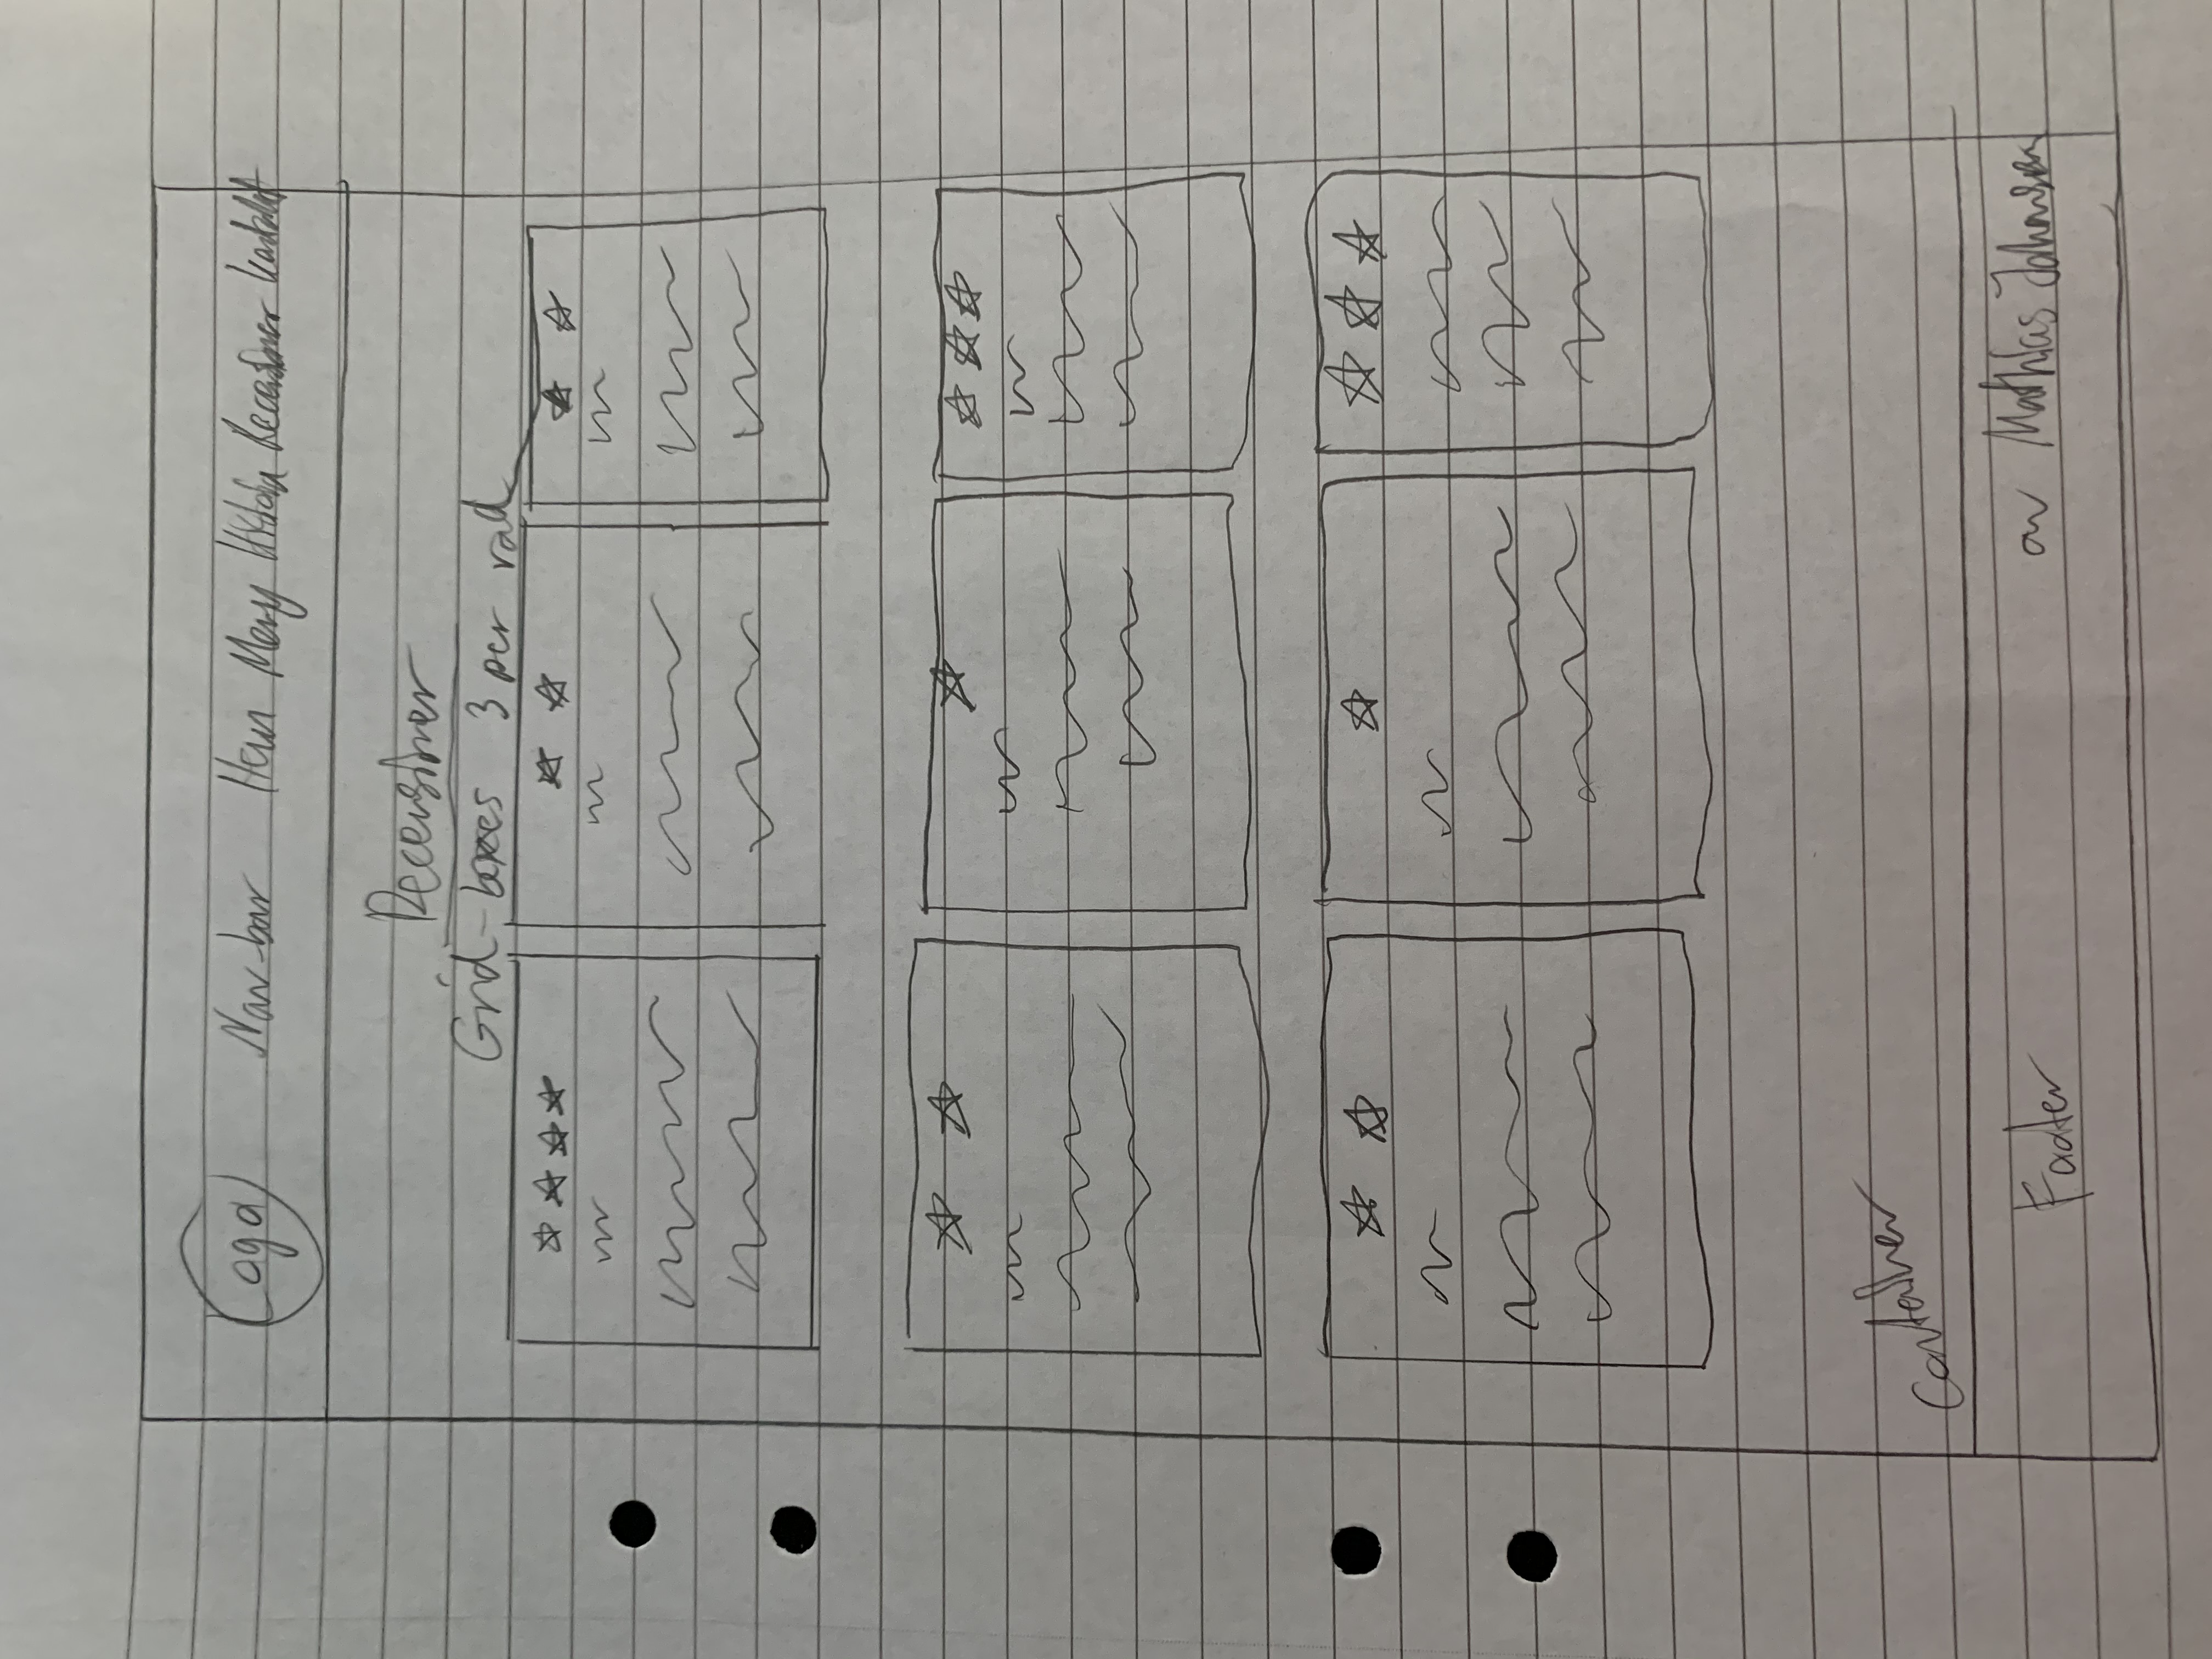 Loga Nav-bar Hem Meny Historia Recensioner kontakt
Recensioner
Grid-boxes 3 per rad
Container
Footer av Mathias Johansson